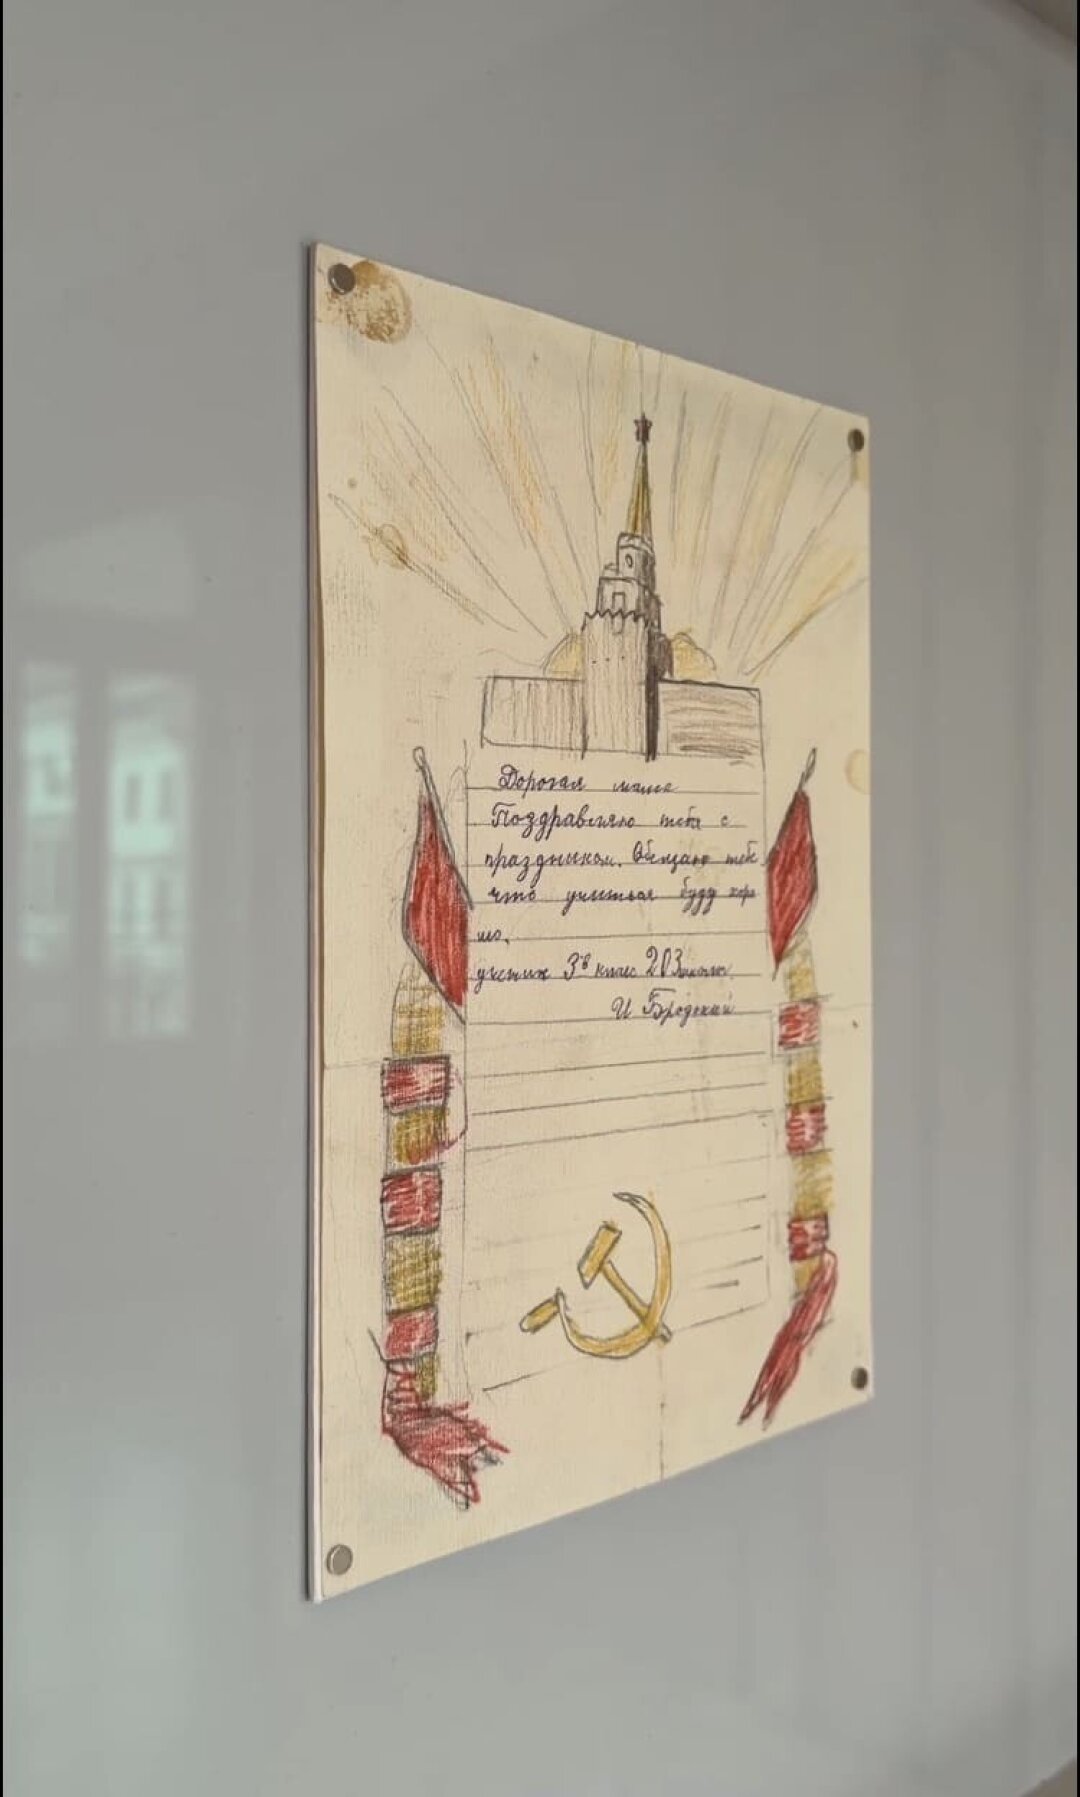 Дорогая мама
Поздравляю тебя с
праздником. Обещаю тебе
что учиться буду хоро
шо.
ученик 3в класс 203 школы
И Бродский